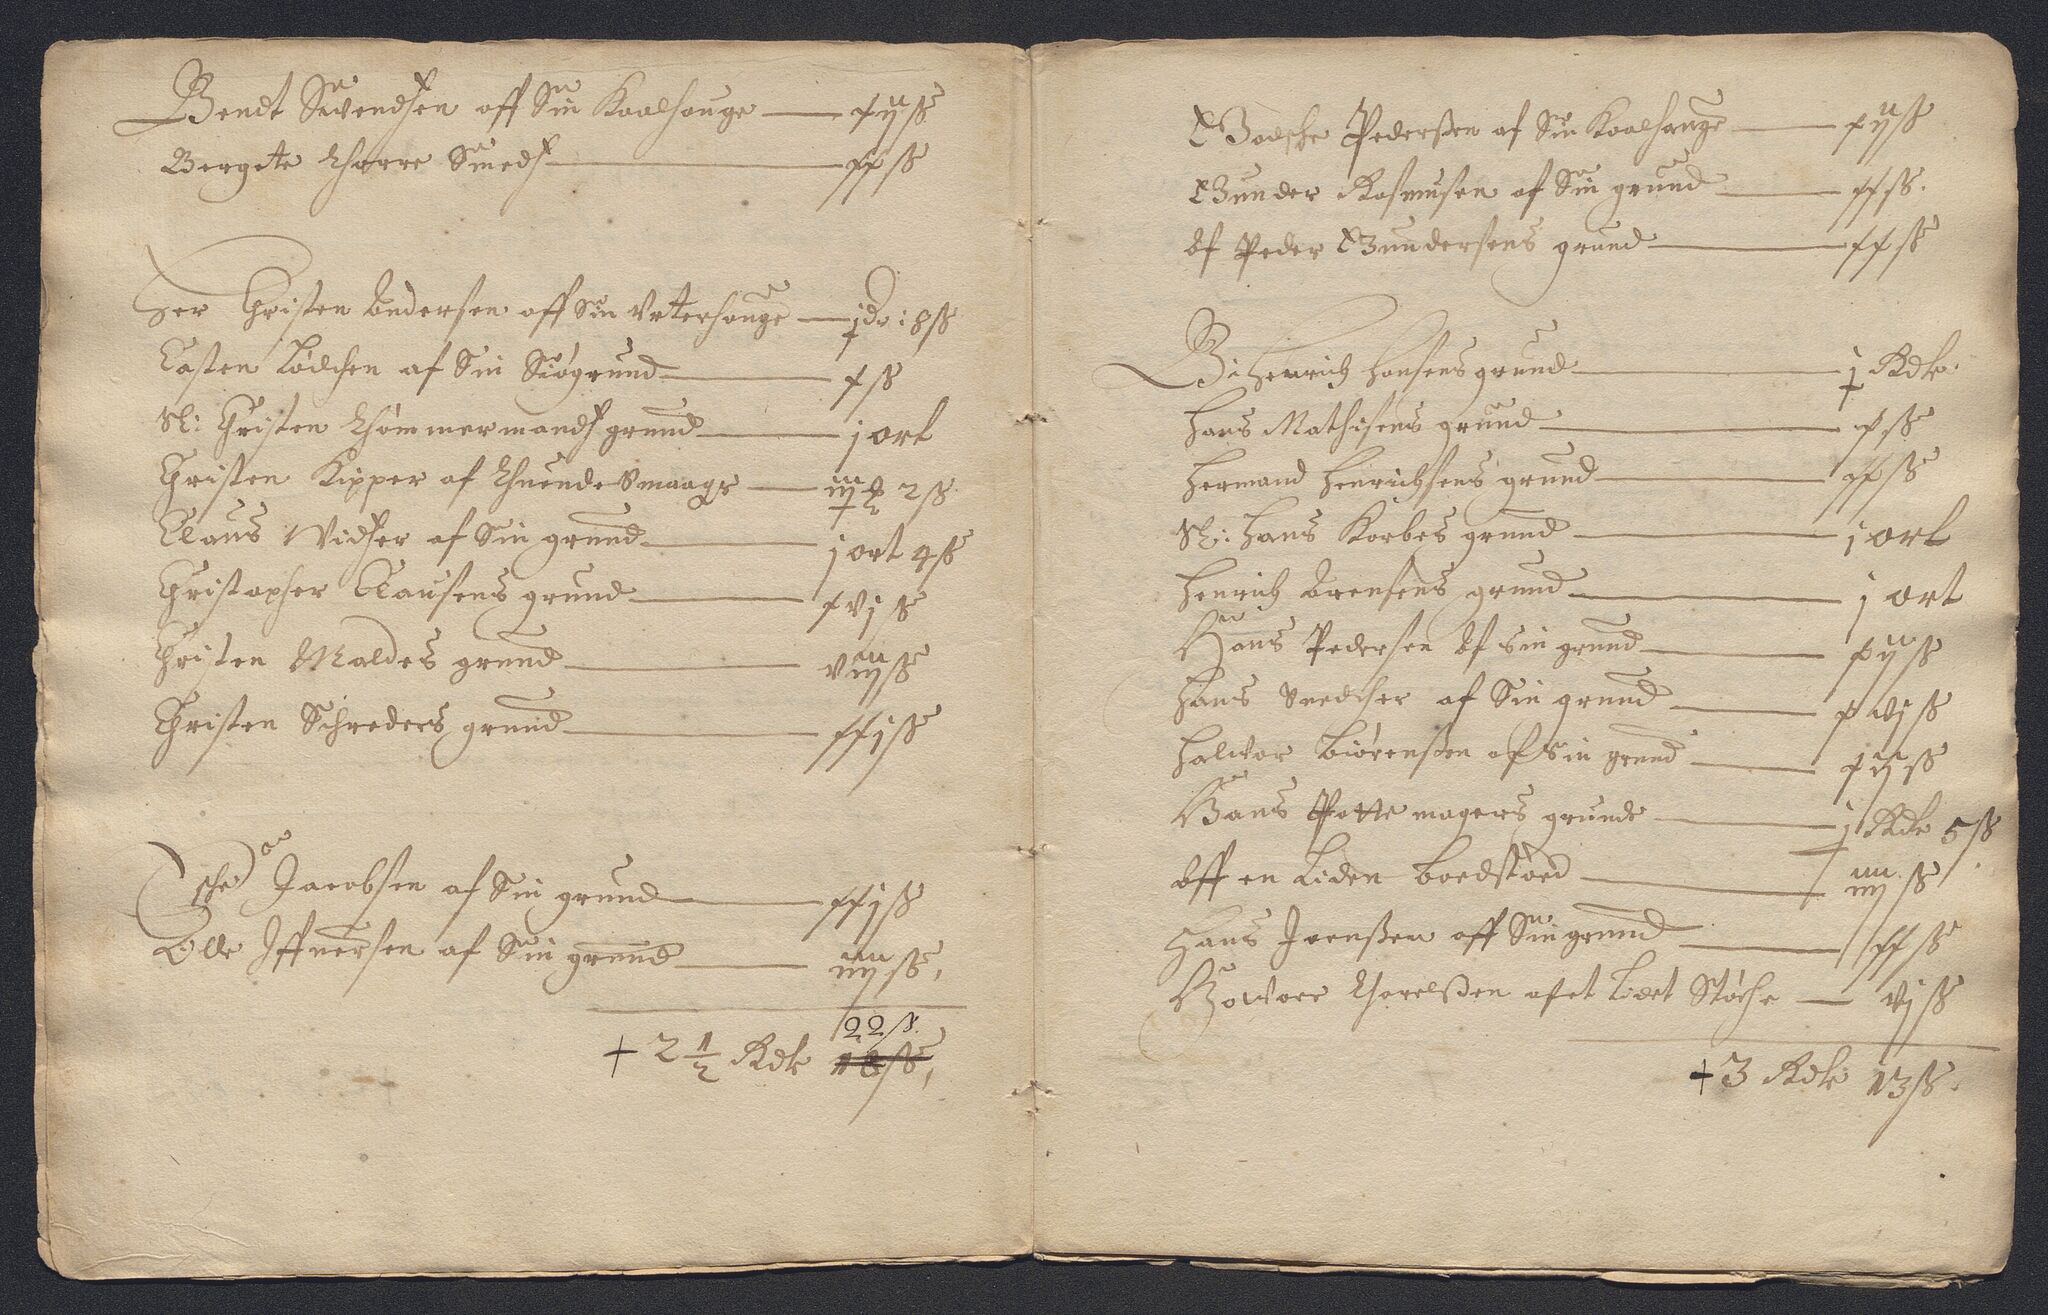 Bendt Swendsen aff Sin Kaalhauge — xijß
Bergete Snieds — xxß
Her Christen Andersen aff Sin Vrterhauge — j dr: 8ß
Casten Lödchen af Sin Siögrund — xß
Sl: Christen Thömmermands grund — j ort
Christen Kipper af Thuende Smaager — iij 2ß
Claus Widser af Sin grund — j ort 4ß
Christopher Clausens grund — xvjß
Christen Maldes grund — viijß
Christen Schreders grund — xxjß
Jacobsen af Sin grund — xxjß
Olle Iffuersen af Sin grund — iiijß
22ß.
+ 2 1/2 Rdlr 18ß
Godsche Pederßen af Sin Kaalhauge — xijß
Gunder Rasmusen af Sin grund — xxß.
Af Peder Gundersens grund — xxß
Henrich Hansens grund — j Rdlr.
Hans Mathisens grund — xß
Hermand Henrichsens grund — xxß
Sl: Hans Korbes grund — j ort
Henrich Arensens grund — j ort
Hans Pedersen Af Sin grund — xijß
Hans Snedcher af Sin grund — xvjß
Halwor Biörenßen af Sin grund — xijß
Hans Pottemagers grunde — j Rdlr 5ß
Aff en Liden boedstoed — iiijß
Hans Ivenßen aff Sin grund — xxß
Howor Thorelßen af et Lidet Stöche — vjß
+ 3 Rdlr 13ß.